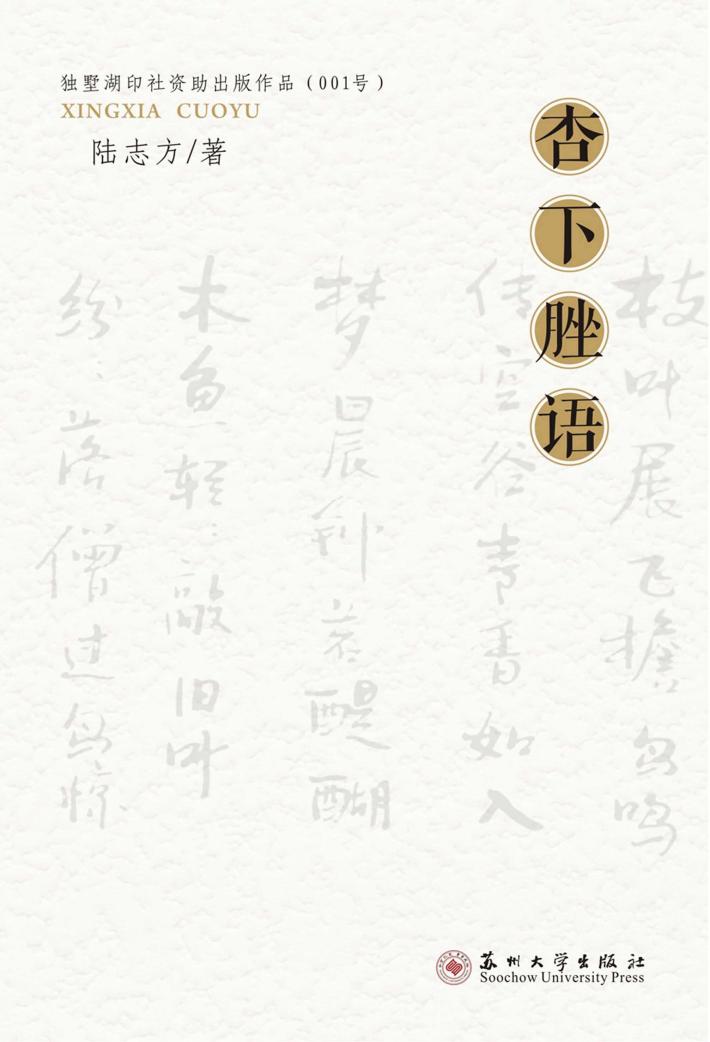 独墅湖印社资助出版作品（001号）
XINGXIA CUOYU
陆志方/著
杏下脞语
枝叶展飞檐鸟鸣
传空谷青香如入
梦晨钟若醍醐
木鱼轻：敲旧叶
纷：落僧过鸟惊
苏州大学出版社
Soochow University Press